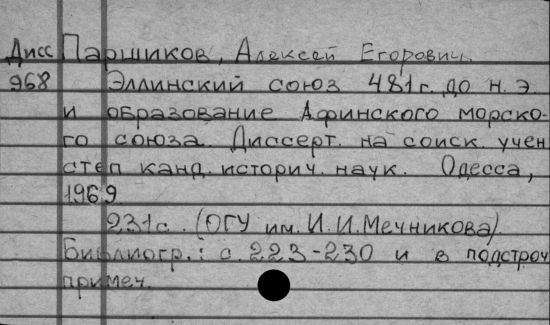 Дисс Паршиков, Алексей Егорович.
968 Эллинский союз 481 г. до н. э.
и образование Афинского морско-
го союза. Диссерт. на соиск. учен
степ канд. историч. наук. Одесса,
1969
231 с. (ОГУ им. И. И. Мечникова).
Библиогр.: с. 223-230 и в подстроч
примеч.